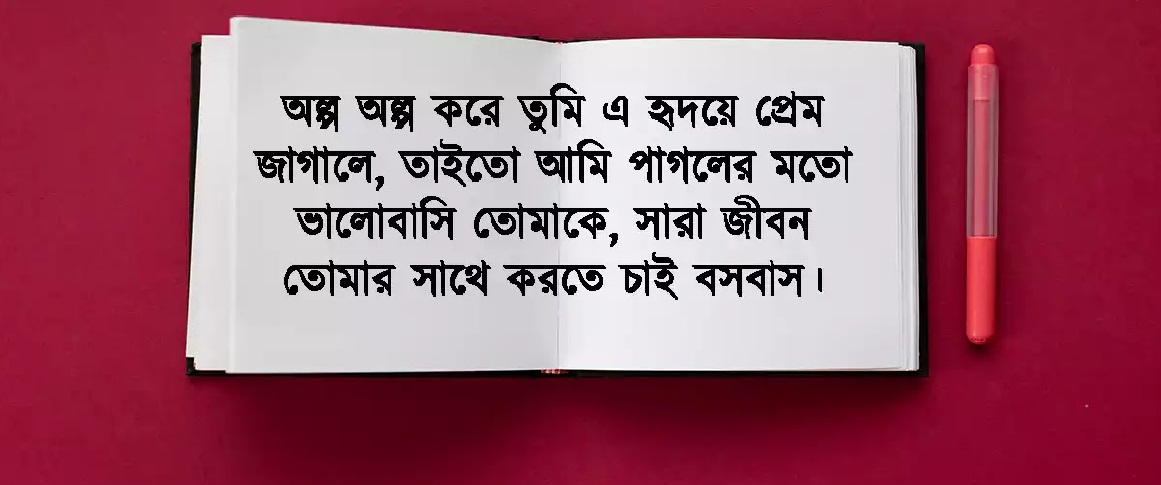 অল্প অল্প করে তুমি এ হৃদয়ে প্রেম
জাগালে, তাইতো আমি পাগলের মতো
ভালোবাসি তোমাকে, সারা জীবন
তোমার সাথে করতে চাই বসবাস।